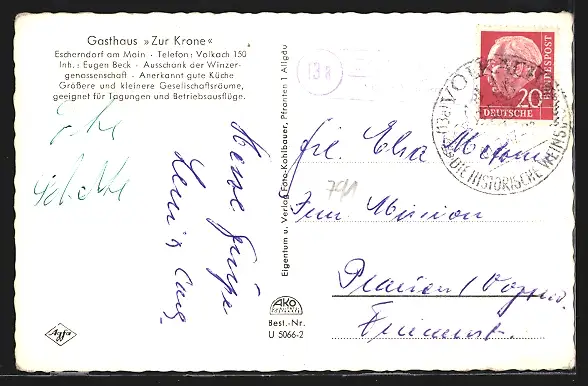 Gasthaus »Zur Krone«
Escherndorf am Main · Telefon: Volkach 150
Inh.: Eugen Beck · Ausschank der Winzer-
genossenschaft · Anerkannt gute Küche
Größere und kleinere Gesellschaftsräume,
geeignet für Tagungen und Betriebsausflüge.
Herzl. Grüße
Eigentum u. Verlag Foto-Kohlbauer, Pfronten 1 Allgäu
AKO
Best.-Nr.
U 5066-2
Agfa
13a
DEUTSCHE
BUNDESPOST
20
VOLKACH
DIE HISTORISCHE WEINS
791
Frl. Elsa
Inn. Mission
Plauen/Vogtl.